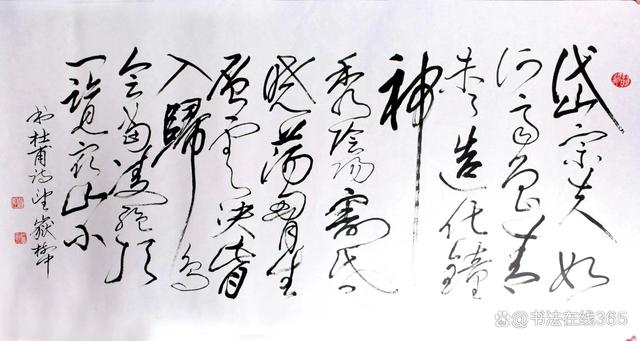 岱宗夫如
何齐鲁青
未了造化鐘
神
秀陰陽割昏
晓蕩胸生
层云决眥
入歸鸟
会当凌绝顶
一览众山小
书杜甫诗望嶽
书法在线365